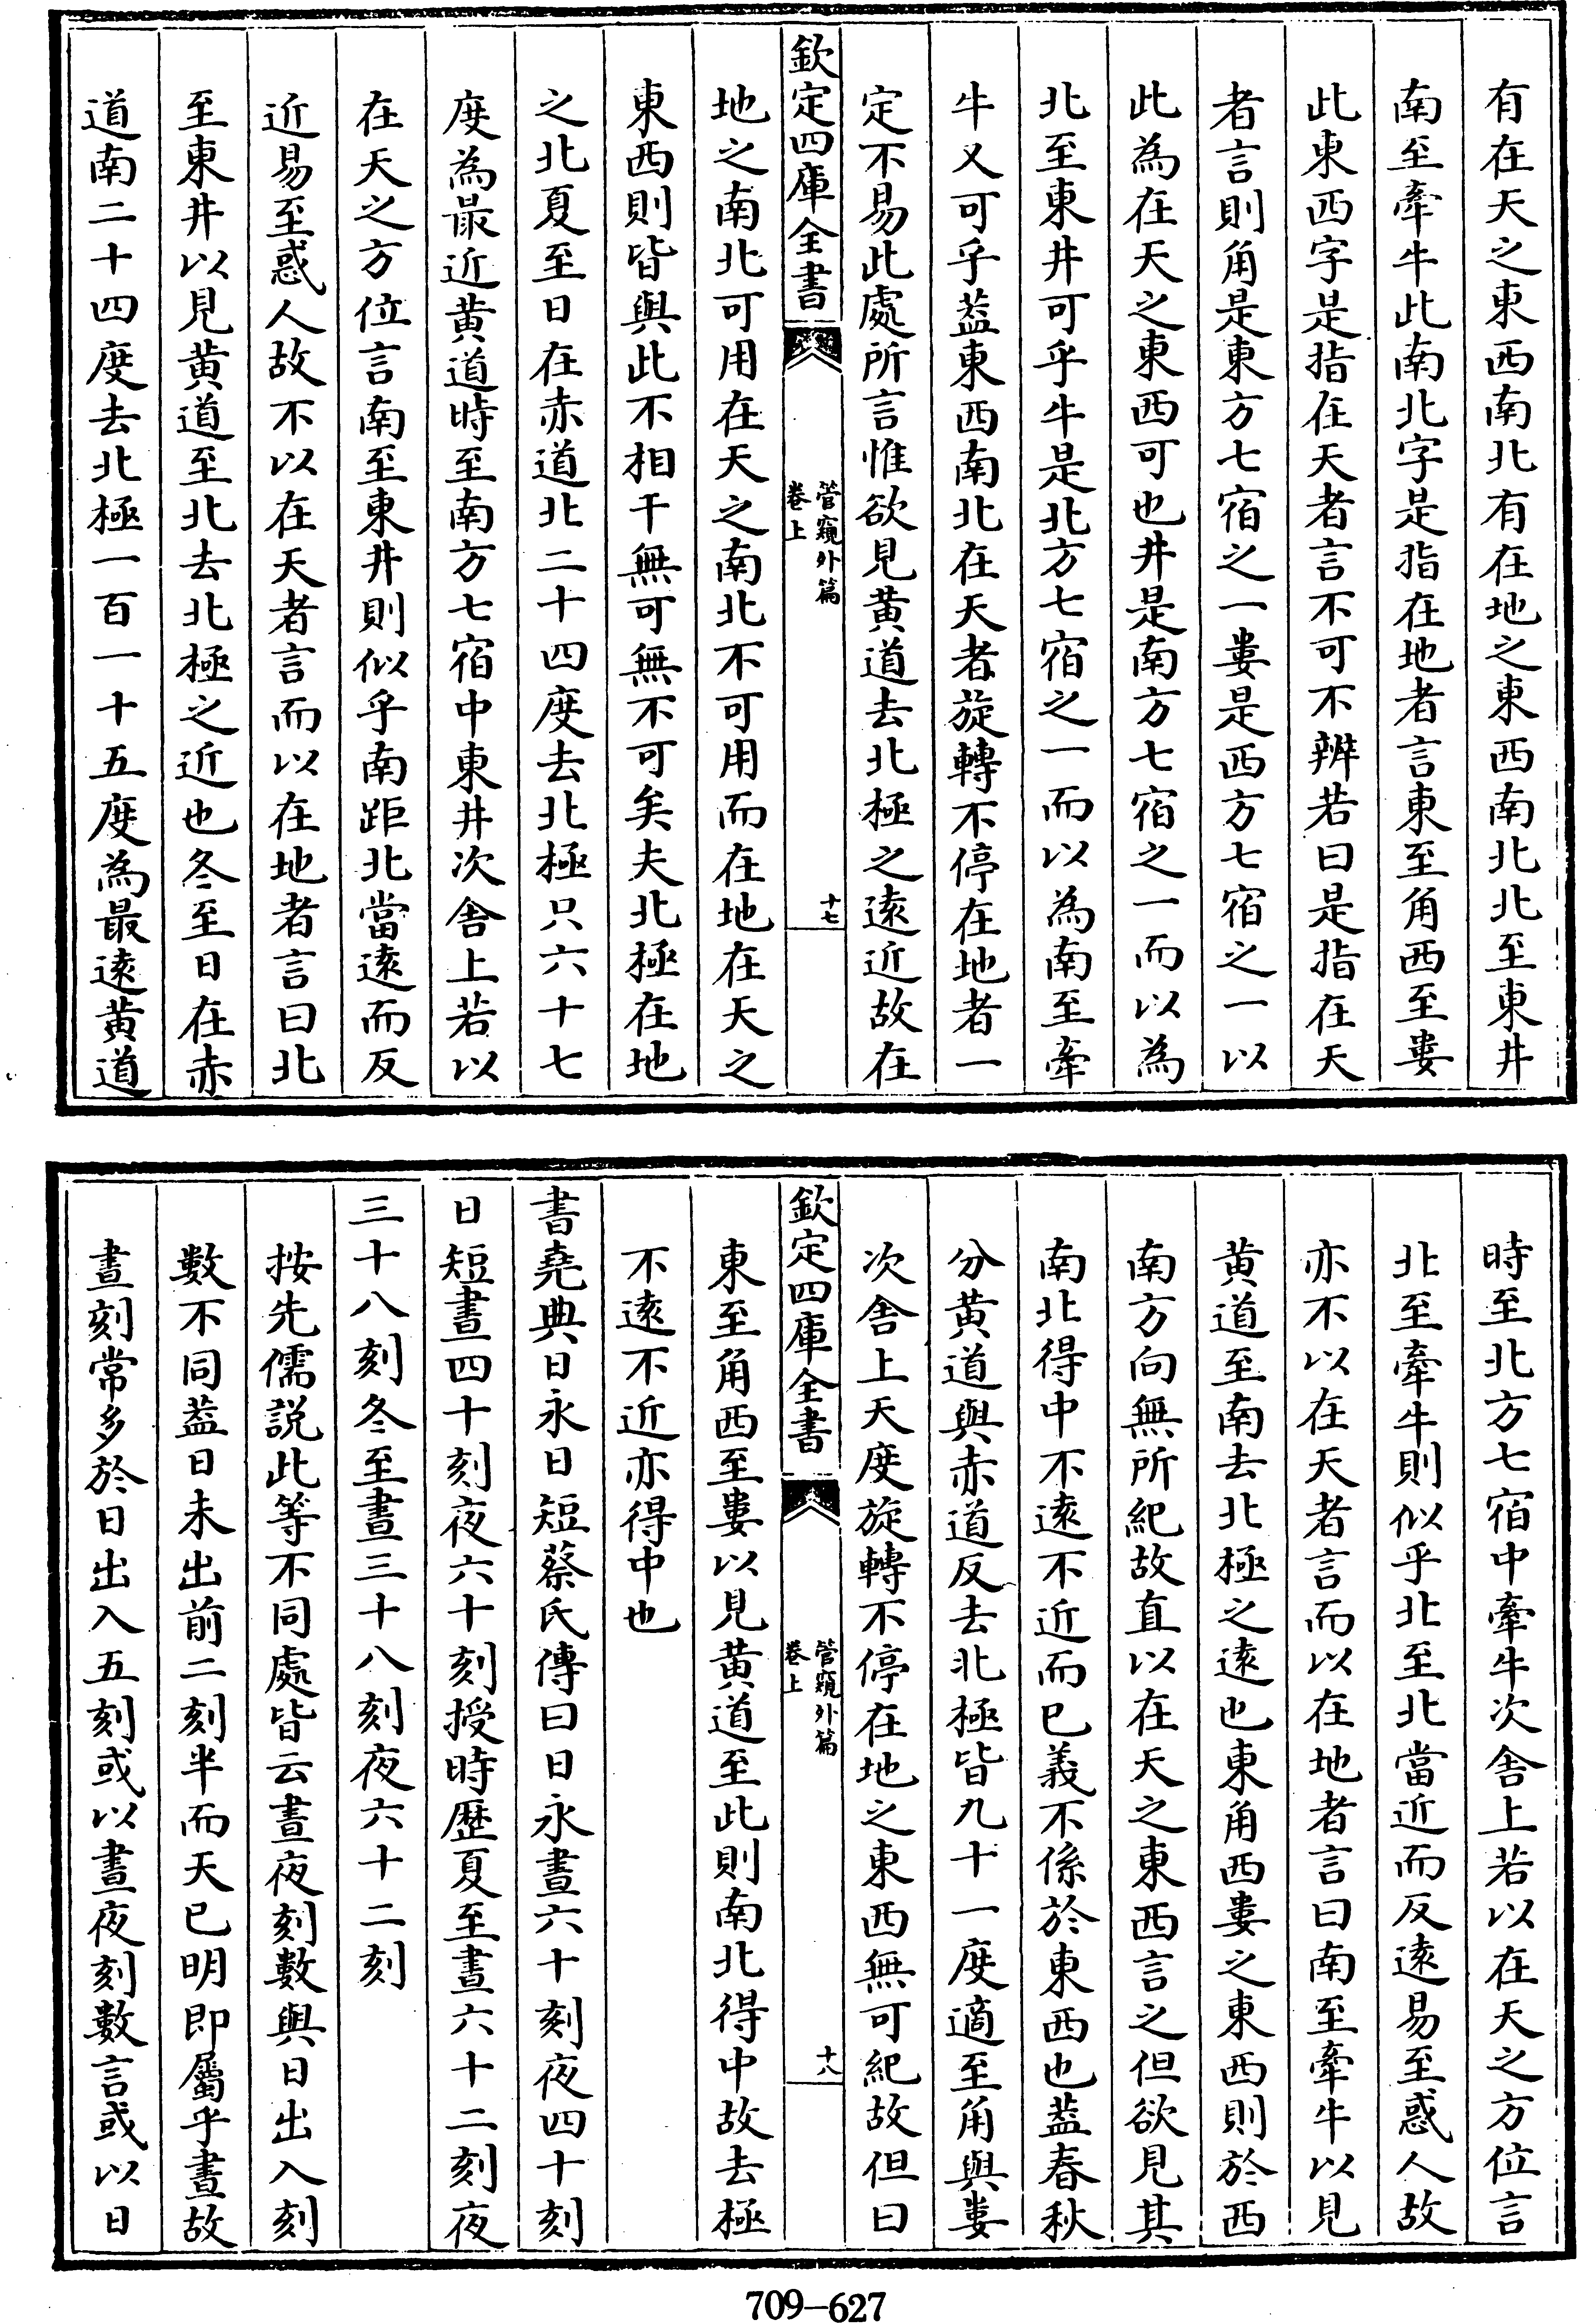 有在天之東西南北有在地之東西南北北至東井
南至牽牛此南北字是指在地者言東至角西至婁
此東西字是指在天者言不可不辨若曰是指在天
者言則角是東方七宿之一婁是西方七宿之一以
此為在天之東西可也井是南方七宿之一而以為
北至東井可乎牛是北方七宿之一而以為南至牽
牛又可乎葢東西南北在天者旋轉不停在地者一
定不易此處所言惟欲見黄道去北極之逺近故在
欽定四庫全書
管窺外篇
卷上
十七
地之南北可用在天之南北不可用而在地在天之
東西則皆與此不相干無可無不可矣夫北極在地
之北夏至日在赤道北二十四度去北極只六十七
度為最近黄道時至南方七宿中東井次舍上若以
在天之方位言南至東井則似乎南距北當逺而反
近易至惑人故不以在天者言而以在地者言曰北
至東井以見黄道至北去北極之近也冬至日在赤
道南二十四度去北極一百一十五度為最逺黄道
時至北方七宿中牽牛次舍上若以在天之方位言
北至牽牛則似乎北至北當近而反逺易至惑人故
亦不以在天者言而以在地者言曰南至牽牛以見
黄道至南去北極之逺也東角西婁之東西則於西
南方向無所紀故直以在天之東西言之但欲見其
南北得中不逺不近而已義不係於東西也葢春秋
分黄道與赤道反去北極皆九十一度適至角與婁
次舍上天度旋轉不停在地之東西無可紀故但曰
欽定四庫全書
管窺外篇
卷上
十八
東至角西至婁以見黄道至此則南北得中故去極
不逺不近亦得中也
書堯典日永日短蔡氏傳曰日永晝六十刻夜四十刻
日短晝四十刻夜六十刻授時歴夏至晝六十二刻夜
三十八刻冬至晝三十八刻夜六十二刻
按先儒説此等不同處皆云晝夜刻數與日出入刻
數不同葢日未出前二刻半而天已明即屬乎晝故
晝刻常多於日出入五刻或以晝夜刻數言或以日
709-627